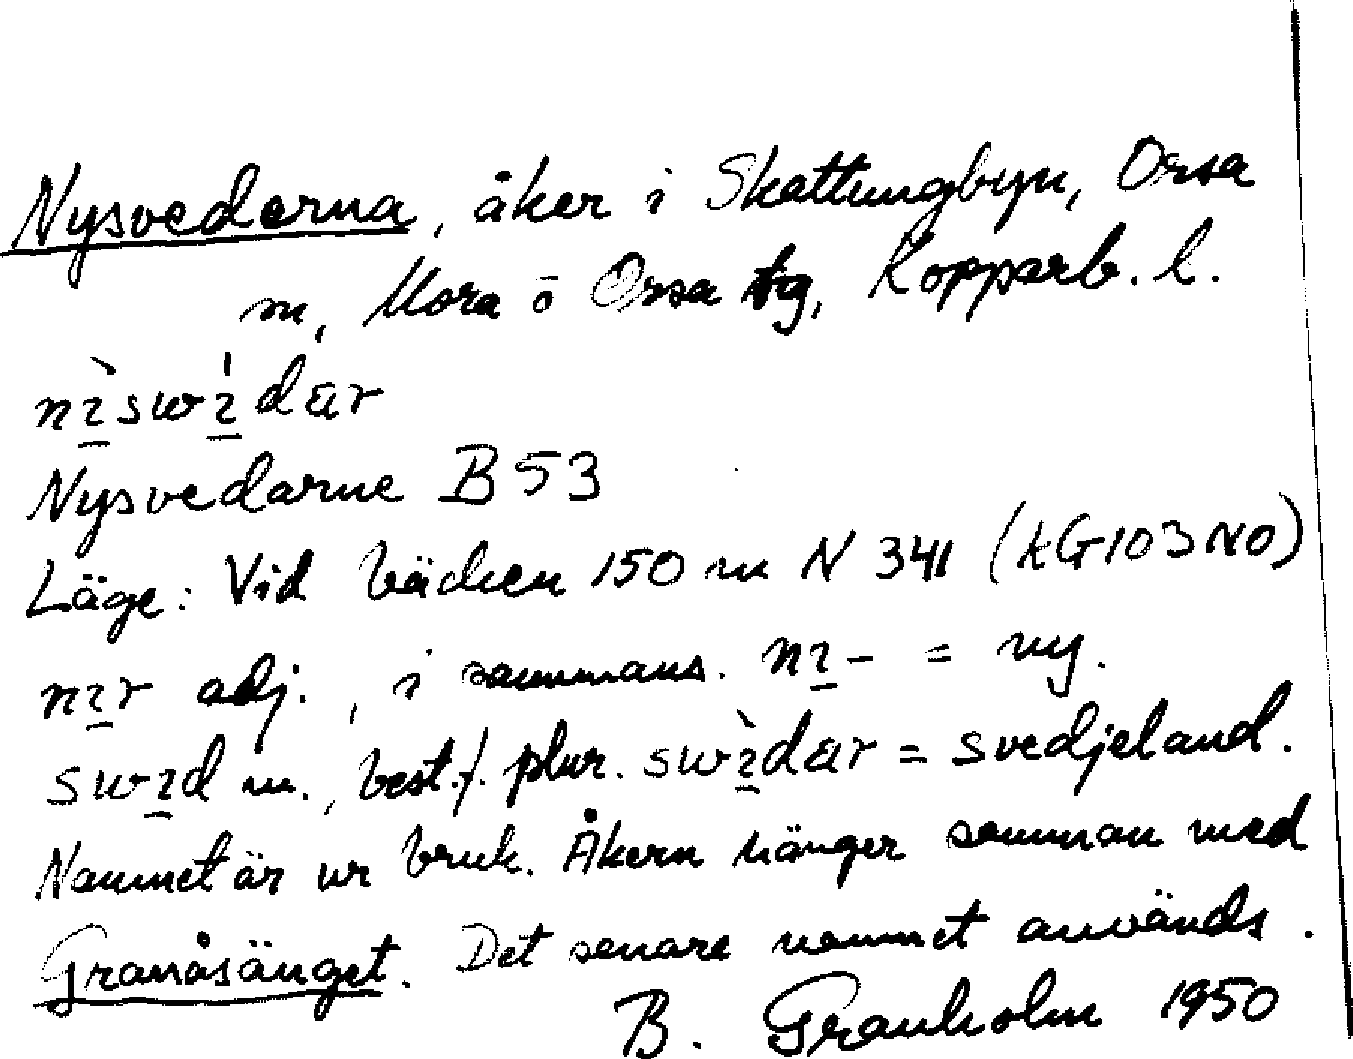 Nysvederna, åker i Skattungbyn, Orsa
m, Mora o Orsa tg, Kopparb. l.
nɩ̠̀swɩ̠́dar
Nysvedarne B 53
Läge: Vid bäcken 150 m N 341 (kG103NO)
nɩ̠r adj., i sammans. nɩ̠- = ny.
swɩ̠d m., best. f. plur. swɩ̠̀dar = svedjeland.
Namnet är ur bruk. Åkern hänger samman med
Granåsänget. Det senare namnet används.
B. Granholm 1950